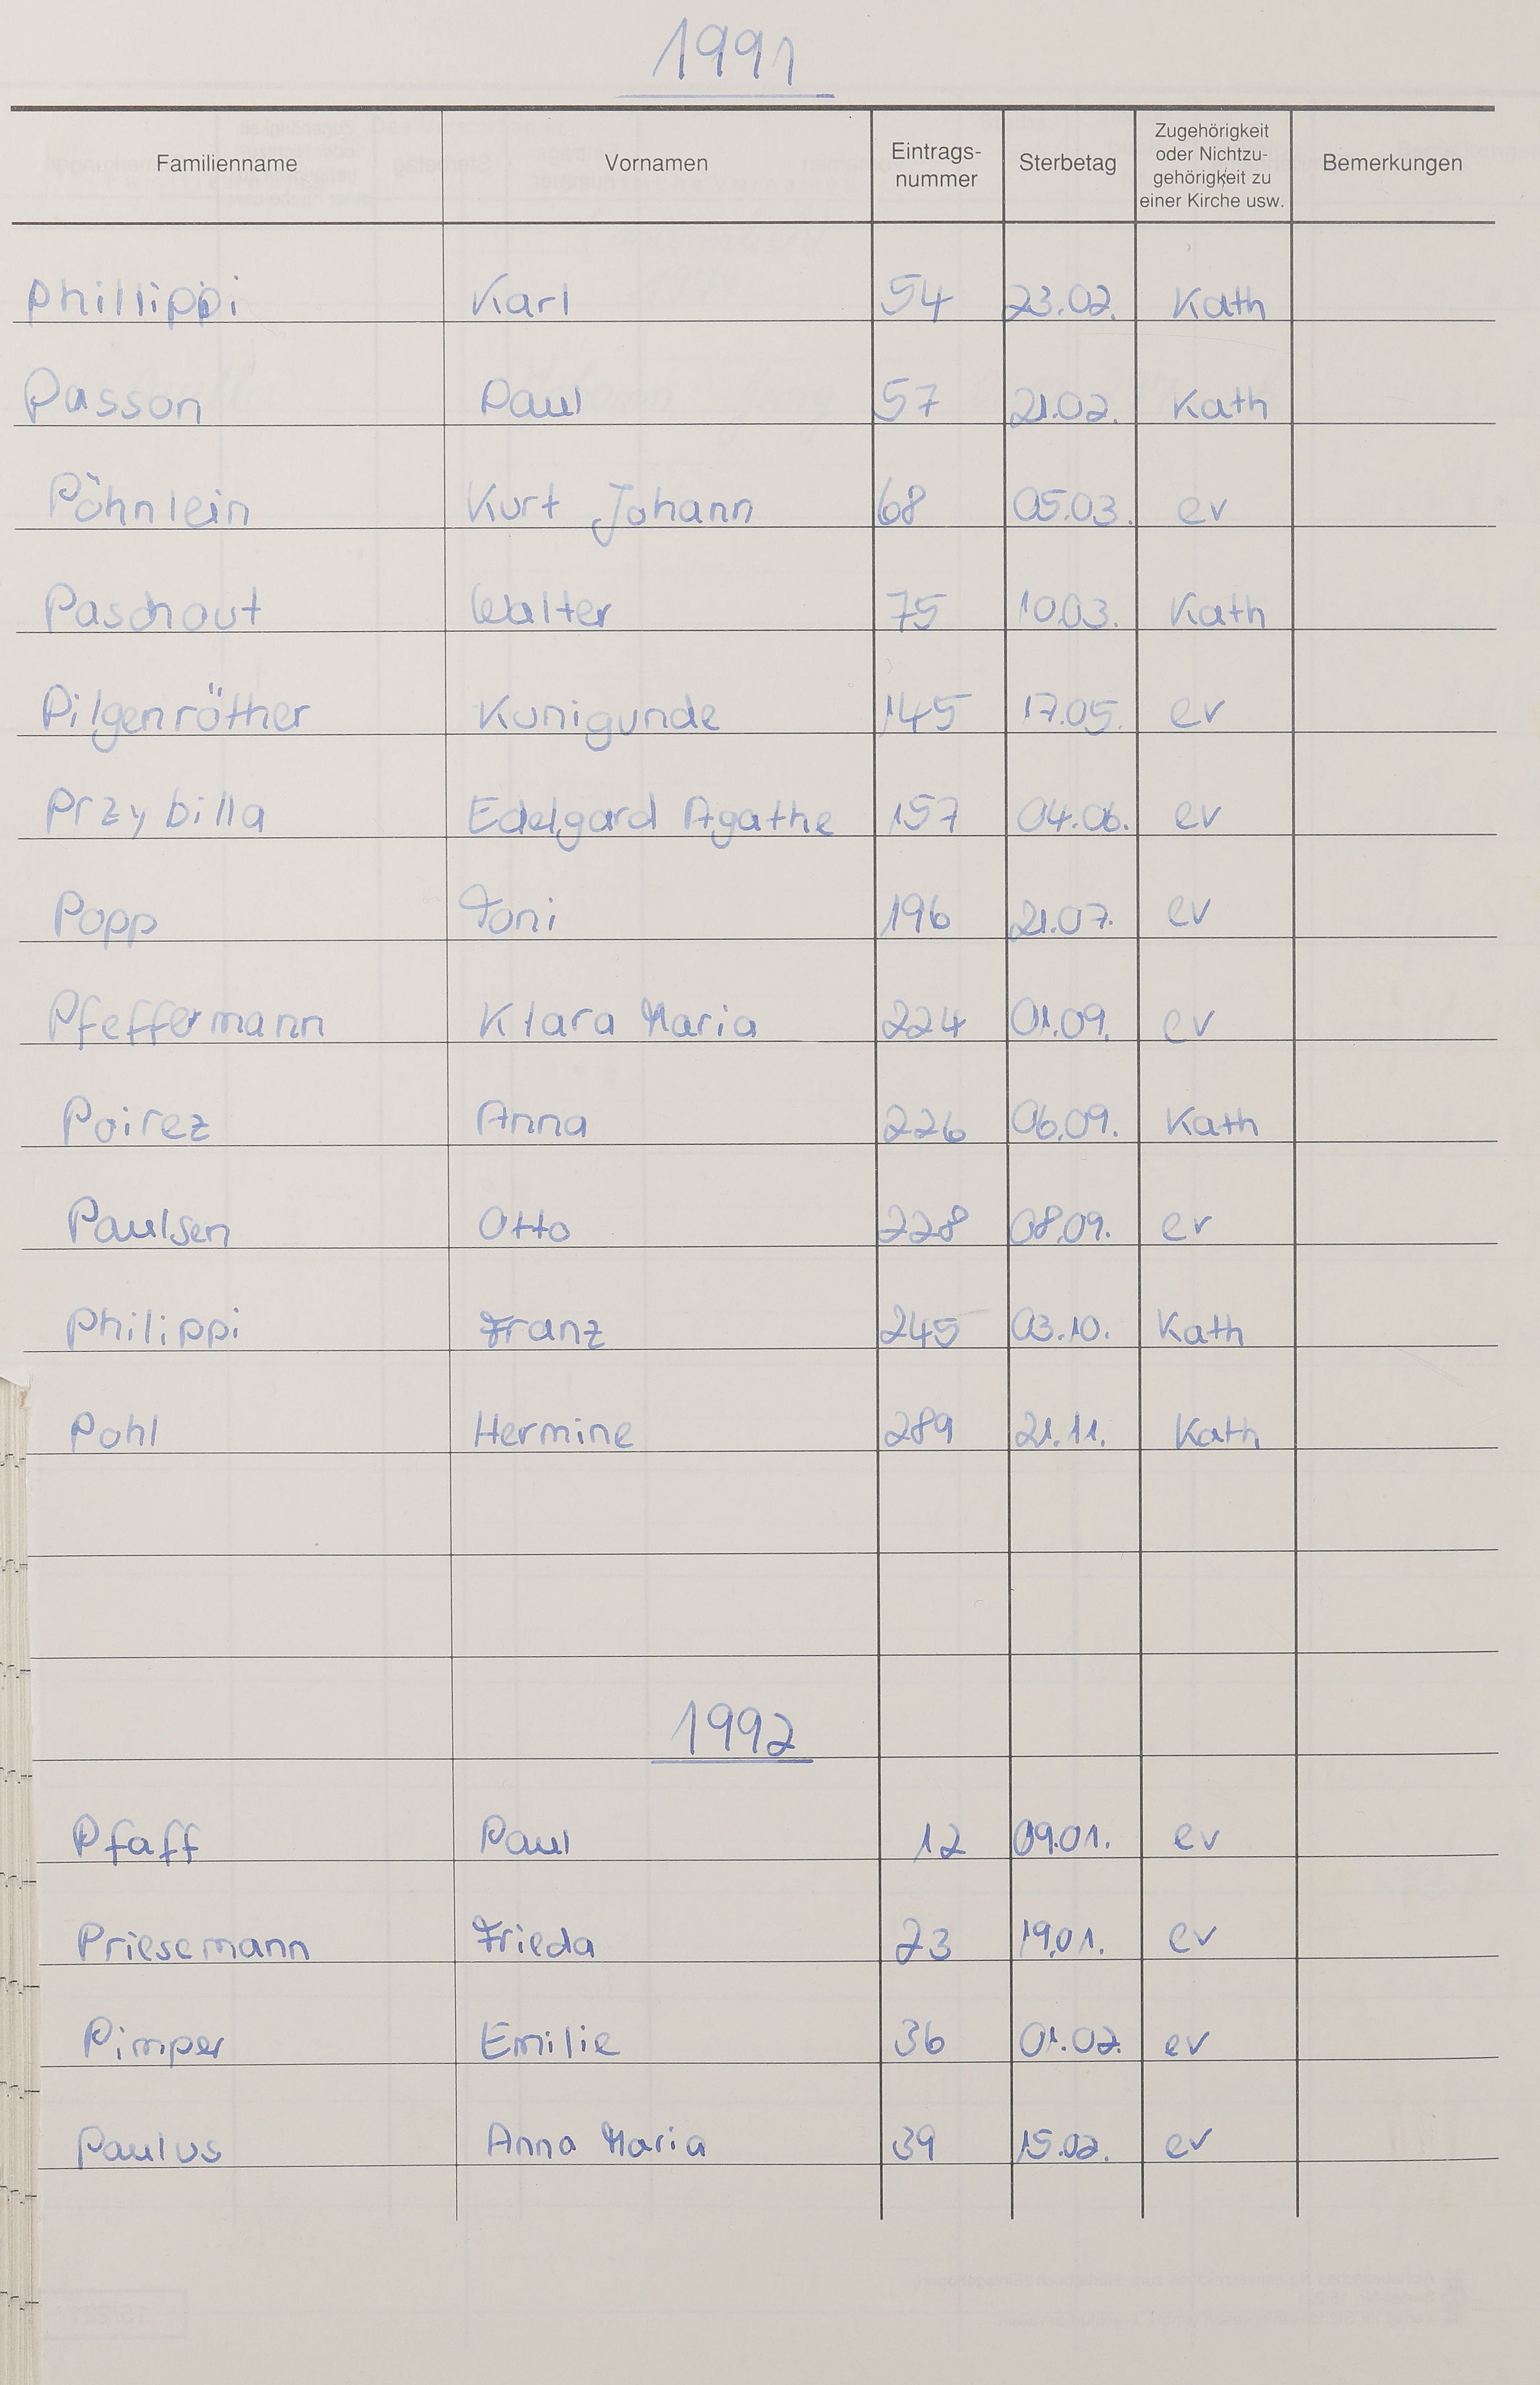 1991
Familienname Vornamen Eintrags-nummer Sterbetag Zugehörigkeit oder Nichtzu-gehörigkeit zu einer Kirche usw. Bemerkungen
Phillippi Karl 54 23.02. Kath
Passon Paul 57 21.02. Kath
Pöhnlein Kurt Johann 68 05.03. ev
Paschout Walter 75 10.03. Kath
Pilgenröther Kunigunde 145 17.05. ev
Przybilla Edelgard Agathe 157 04.06. ev
Popp Toni 196 21.07. ev
Pfeffermann Klara Maria 224 01.09. ev
Poirez Anna 226 06.09. Kath
Paulsen Otto 228 08.09. ev
Philippi Franz 245 03.10. Kath
Pohl Hermine 289 21.11. Kath
1992
Pfaff Paul 12 09.01. ev
Priesemann Frieda 23 19.01. ev
Pimper Emilie 36 01.02. ev
Paulus Anna Maria 39 15.02. ev